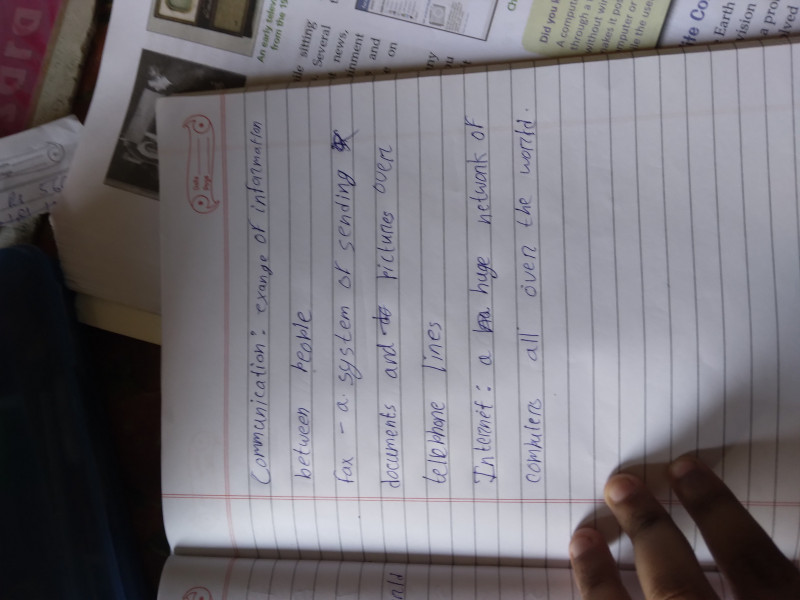 Communication: exange of information
between people
fax - a system of sending
documents and pictures over
telephone lines
Internet: a huge network of
computers all over the world.
An early telev
from the 19
ile sitting
Several
news,
inment
and
on
Did you
A comput
through a
without wir
akes it pos
mputer or
le the use
ite Co
Earth
vision
a Pro
olved